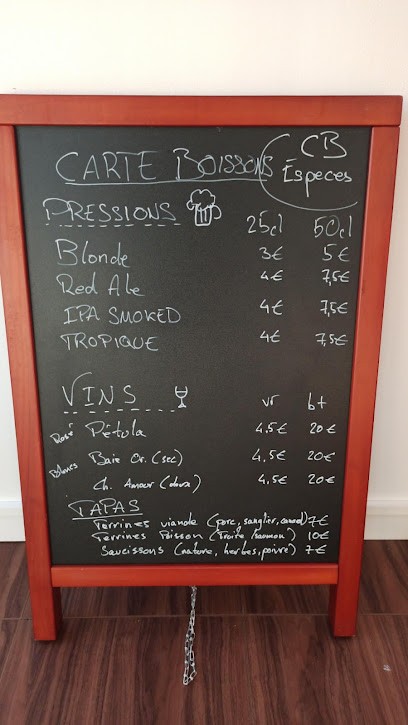 CARTE BOISSONS
CB
Éspeces
PRESSIONS 25cl 50cl
Blonde 3€ 5€
Red Ale 4€ 7,5€
IPA SMOKED 4€ 7,5€
TROPIQUE 4€ 7,5€
VINS vr bt
Rosé Pétula 4,5€ 20€
Blancs Baie Or (sec) 4,5€ 20€
Ch. Amour (doux) 4,5€ 20€
TAPAS
Terrines viande (porc, sanglier, canard) 7€
Terrines Poisson (truite/saumon) 10€
Saucissons (nature, herbes, poivre) 7€